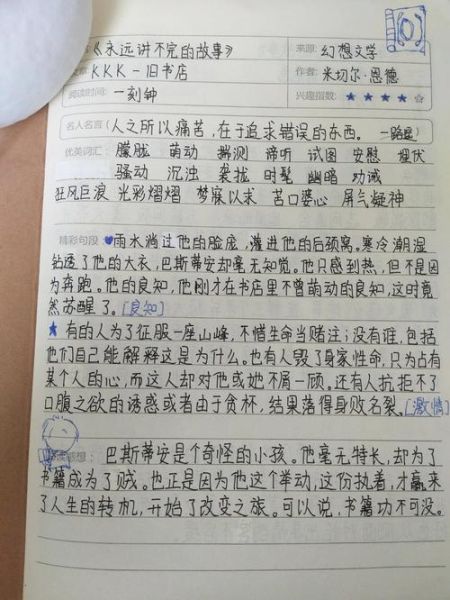 《永远讲不完的故事》 来源: 幻想文学
KKK-旧书店 作者: 米切尔·恩德
阅读时间: 一刻钟 兴趣指数: ★ ★ ★ ★ ☆
名人名言 (人之所以痛苦，在于追求错误的东西。
优美词汇: 朦胧 萌动 揣测 谛听 试图 安慰 埋伏
骚动 沉浊 袭扰 时髦 幽暗 劝诫
狂风巨浪 光彩熠熠 梦寐以求 苦口婆心 屏气疑神
精彩句段: 雨水淌过他的脸庞，灌进他的后颈窝。寒冷潮湿
钻透了他的大衣，巴斯蒂安却毫无知觉。他只感到热，但不是因
为奔跑。他的良知，他刚才在书店里不曾萌动的良知，这时竟
然苏醒了。[良知]
★ 有的人为了征服一座山峰，不惜生命当赌注；没有谁，包括
他们自己能解释这是为什么。也有人毁了身家性命，只为占有
某个人的心，而这人却对他或她不屑一顾。还有人抗拒不了
口腹之欲的诱惑或者由于贪杯，结果落得身败名裂。[激情]
感想: 巴斯蒂安是个奇怪的小孩。他毫无特长，却为了
书籍成为了贼。也正是因为他这个举动，这份执着，才赢来
了人生的转机，开始了改变之旅。可以说，书籍功不可没。